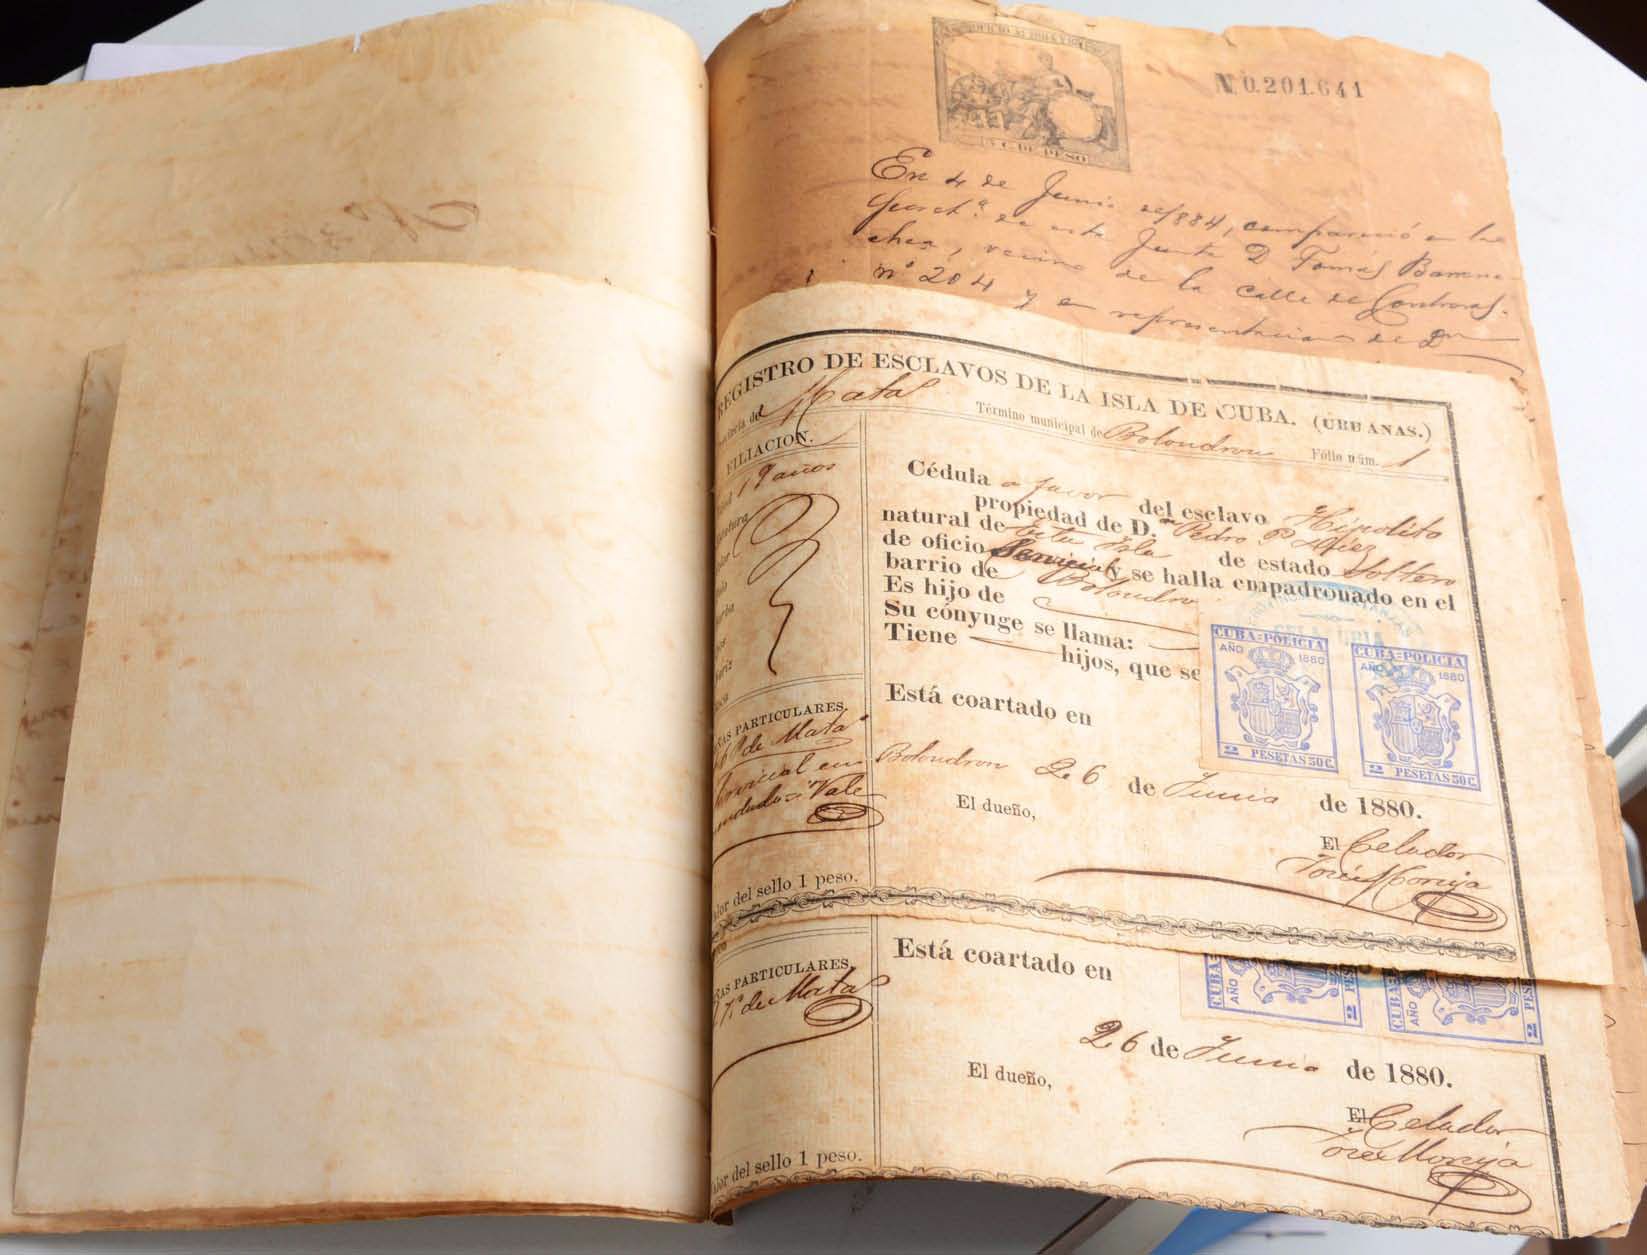 No.201.641
UN C. DE PESO
En 4 de Junio de 1884, compareció en la
Secret.ª de esta Junta D Tomás Barrene
chea, vecino de la calle de Contreras
nº 204 y en representacion de Dn
REGISTRO DE ESCLAVOS DE LA ISLA DE CUBA. (URBANAS.)
Provincia de Matas Término municipal de Bolondron Fólio núm. 1
FILIACION.
19 años
Cédula a favor del esclavo Hipolito
propiedad de D.n Pedro P. Diez
natural de esta Isla de estado Soltero
de oficio Servicial y se halla empadronado en el
barrio de Bolondron
Es hijo de
Su cónyuge se llama:
Tiene hijos, que se
CUBA=POLICIA
AÑO 1880
2 PESETAS 50 C.
CUBA=POLICIA
AÑO 1880
2 PESETAS 50 C.
SEÑAS PARTICULARES.
de Matas
Servicial en
mendado = Vale
Está coartado en
Bolondron 26 de Junio de 1880.
El dueño,
El Celador
José Monja
Valor del sello 1 peso.
SEÑAS PARTICULARES.
de Matas
Está coartado en
CUBA
AÑO
2 PES
CUBA
AÑO
2
26 de Junio de 1880.
El dueño,
El Celador
José Monja
Valor del sello 1 peso.